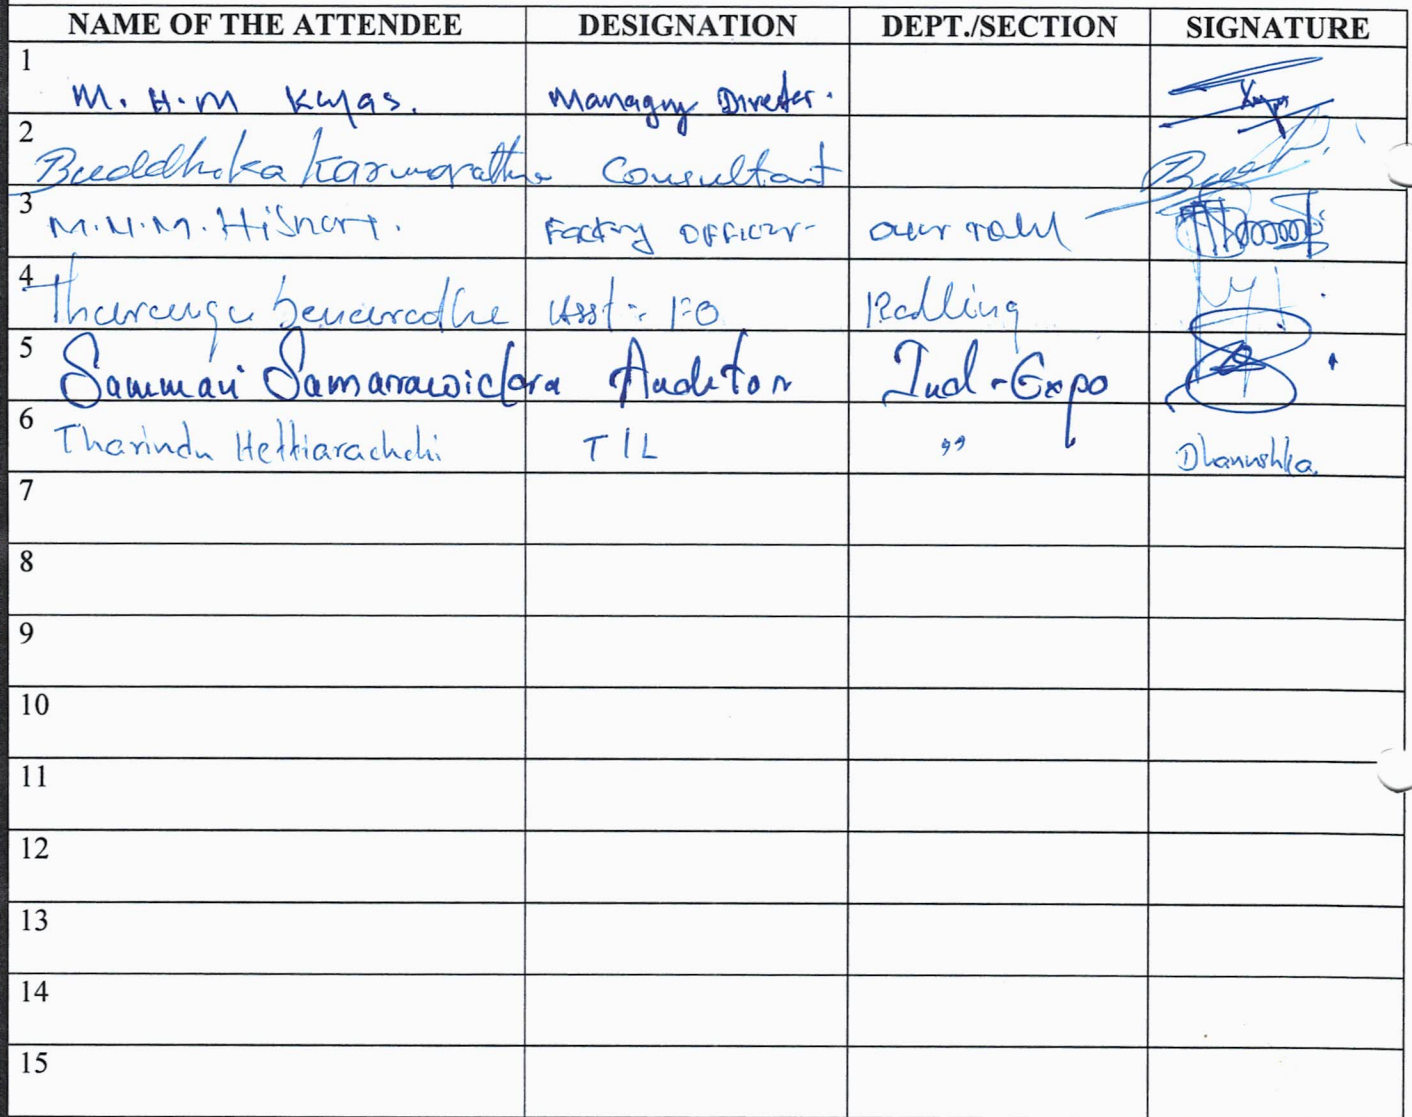 NAME OF THE ATTENDEE DESIGNATION DEPT./SECTION SIGNATURE
1
M. H. M Kyas. Managing Director.
2
Buddhika Karunarathne Consultant
3
M.H.M. Factory Officer
4
Asst. FO
5
Samman Samarawickra Auditor Ind-Expo
6
Tharindu Hettiarachchi TIL ,, Dhanushka
7
8
9
10
11
12
13
14
15